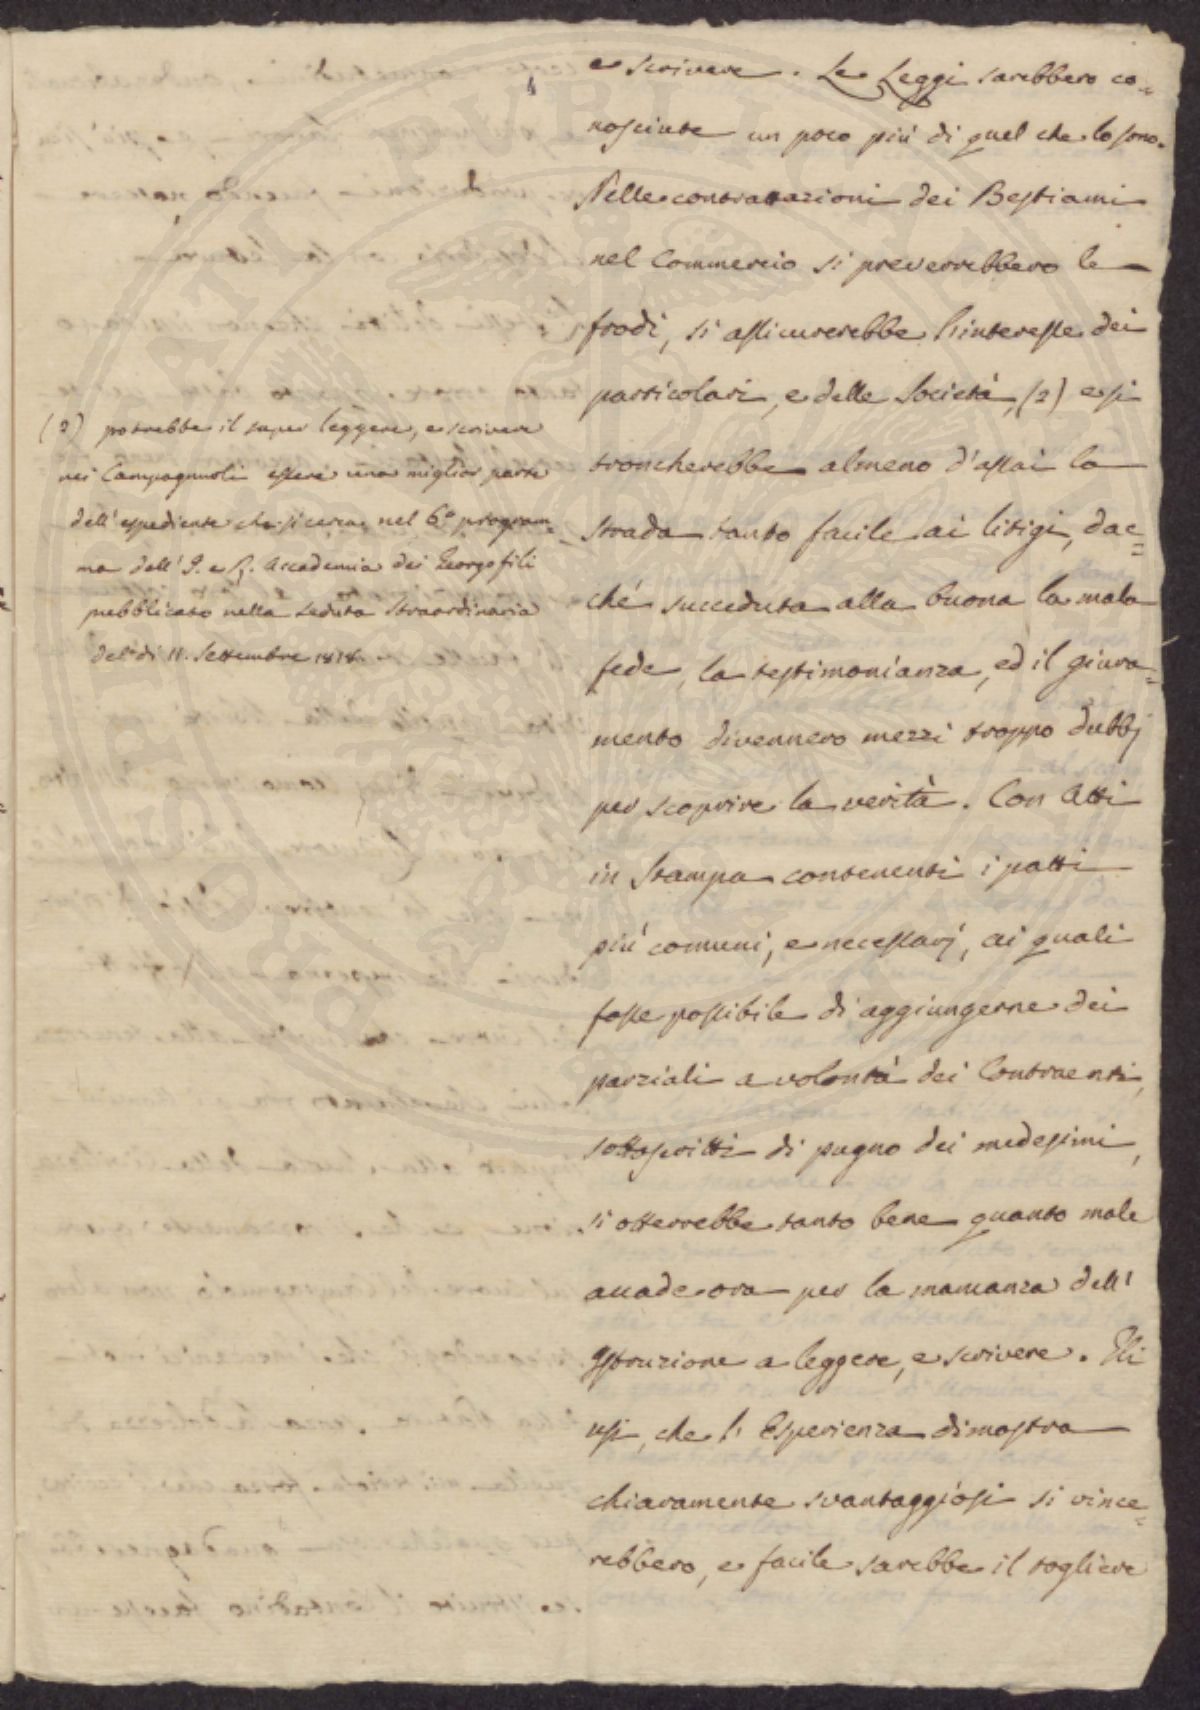 e scrivere. Le Leggi sarebbero co=
nosciute un poco più di quel che lo sono.
Nelle contrattazioni dei Bestiami
nel Commercio si preverrebbero le
frodi, si assicurerebbe l'interesse dei
particolari, e delle Società, (2) e si
troncherebbe almeno d'assai la
strada tanto facile ai litigi, dac=
ché succeduta alla buona la mala
fede, la testimonianza, ed il giura=
mento divennero mezzi troppo dubbj
per scoprire la verità. Con Atti
in Stampa contenenti i patti
più comuni, e necessarj, ai quali
fosse possibile di aggiungerne dei
parziali a volontà dei Contraenti,
sottoscritti di pugno dei medesimi,
si otterrebbe tanto bene quanto male
accade ora per la mancanza dell'
Istruzione a leggere, e scrivere. Gli
usi, che l'Esperienza dimostra
chiaramente svantaggiosi si vince=
rebbero, e facile sarebbe il togliere
(2) potrebbe il saper leggere, e scrivere
nei Campagnuoli essere una miglior parte
dell'espediente che si cerca nel 6.° program=
ma dell'I. e R. Accademia dei Georgofili
pubblicato nella seduta straordinaria
del dì 11. Settembre 1818.